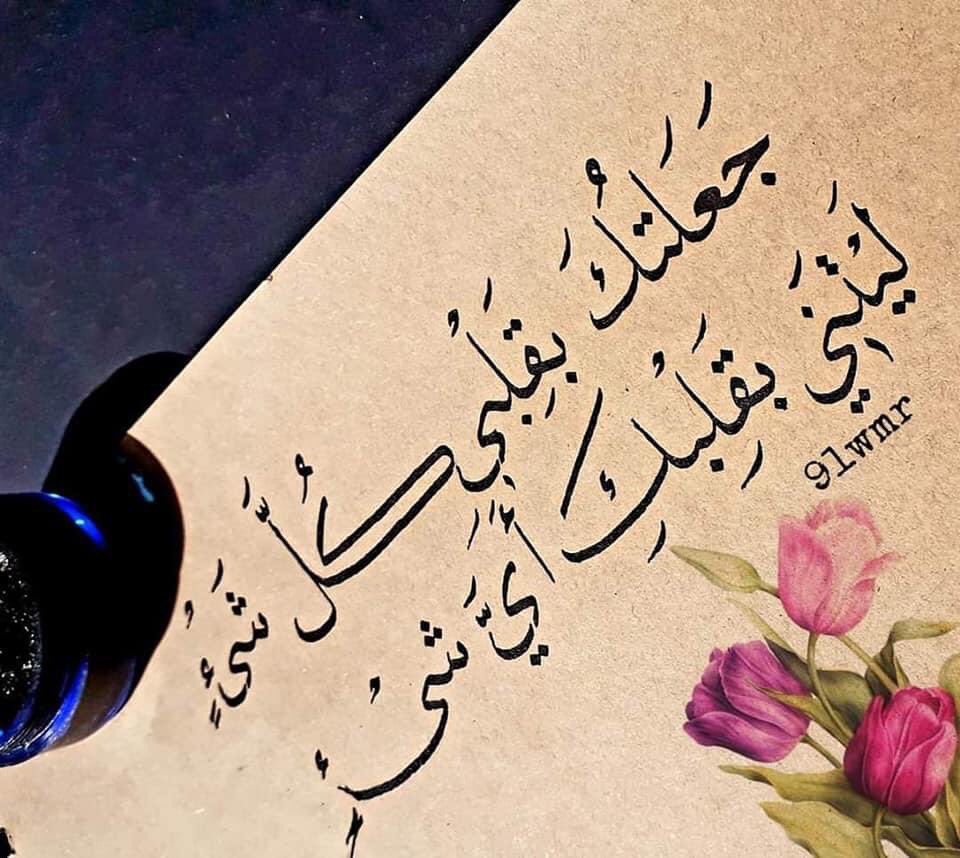 جَعَلتُكَ بِقَلبْي كُلَّ شَيْءٍ
لَيْتَنِي بِقَلِبْكِ أَيَّ شَيْءٍ
91wmr